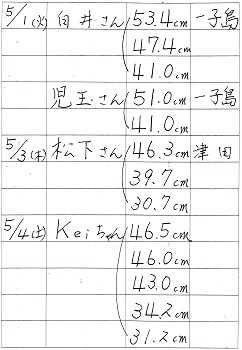 5/1(火) 白井さん 53.4cm 一子島
47.4cm
41.0cm
児玉さん 51.0cm 一子島
41.0cm
5/3(木) 松下さん 46.3cm 津田
39.7cm
30.7cm
5/4(土) Keiちゃん 46.5cm
46.0cm
43.0cm
34.2cm
31.2cm